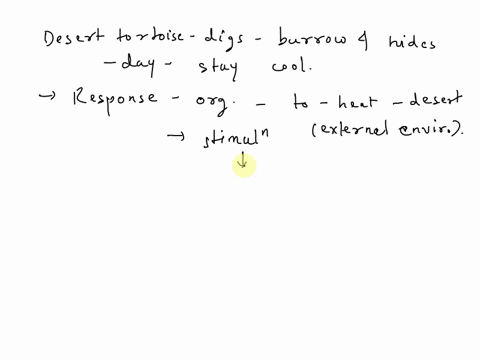 Desert tortoise - digs - burrow & hides
- day - stay cool.
→ Response - org. - to - heat - desert
→ stimulⁿ (external enviro.).
↓